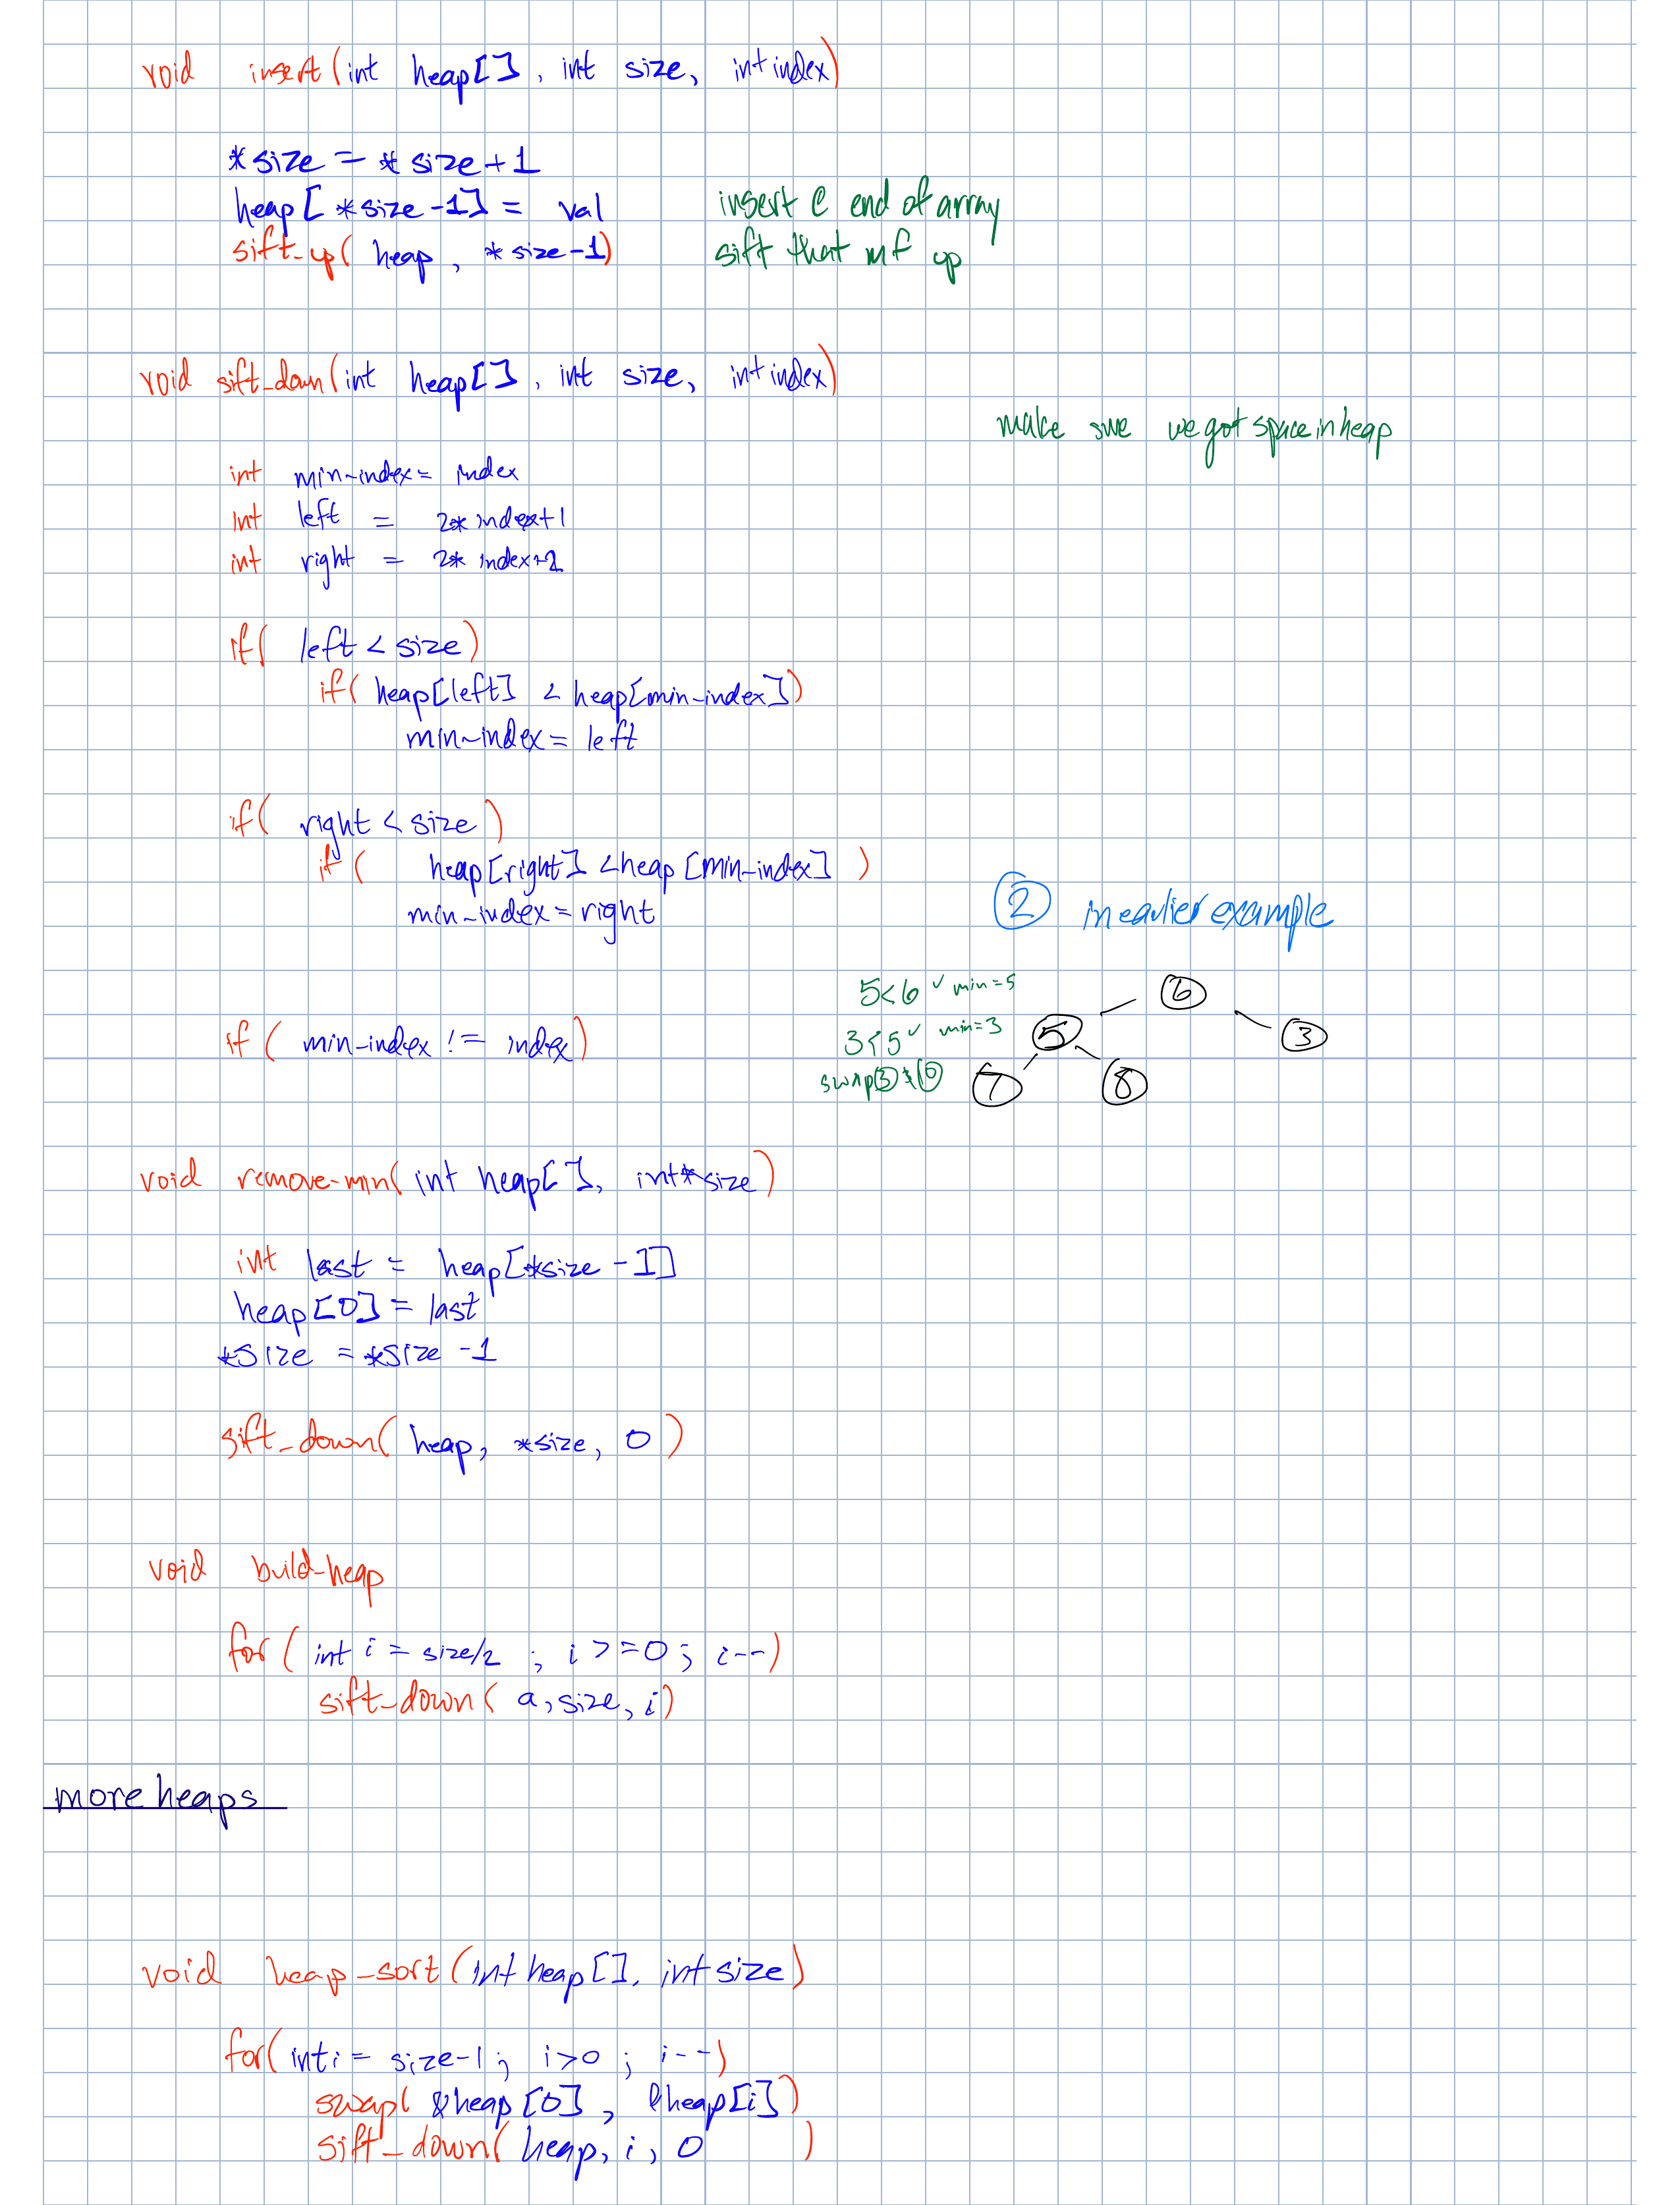 void insert(int heap[], int size, int index)
*size = *size+1
heap[*size-1] = val insert @ end of array
sift_up( heap, *size-1) sift that mf up
void sift_down(int heap[], int size, int index)
make sure we got space in heap
int min-index = index
int left = 2* index+1
int right = 2* index+2
if( left < size)
if( heap[left] < heap[min-index])
min-index = left
if( right < size )
if( heap[right] < heap[min-index] )
min-index = right
② in earlier example
5<6 ✓ min=5 6
3<5 ✓ min=3 5 3
swap ③ & ⑥ 7 8
if ( min-index != index)
void remove-min( int heap[], int*size)
int last = heap[*size -1]
heap[0] = last
*size = *size -1
sift_down( heap, *size, 0 )
void build-heap
for ( int i = size/2 ; i >=0 ; i--)
sift_down( a, size, i)
more heaps
void heap-sort (int heap[], int size)
for( int i = size-1 ; i>0 ; i--)
swap( &heap[0] , &heap[i])
sift_down( heap, i, 0 )